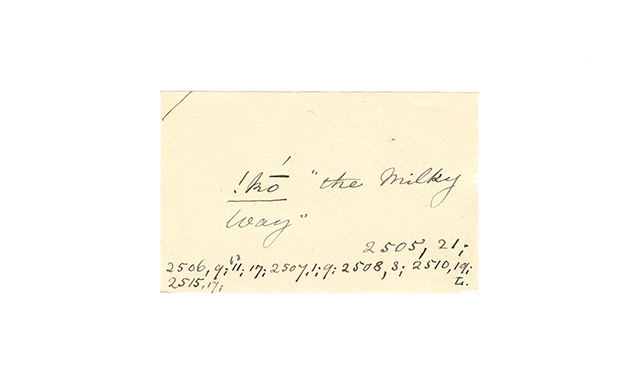 !kṓ "the Milky
Way"
2505, 21;
2506, 9; 11; 17; 2507, 1; 9; 2508, 3; 2510, 19;
2515, 17; L.